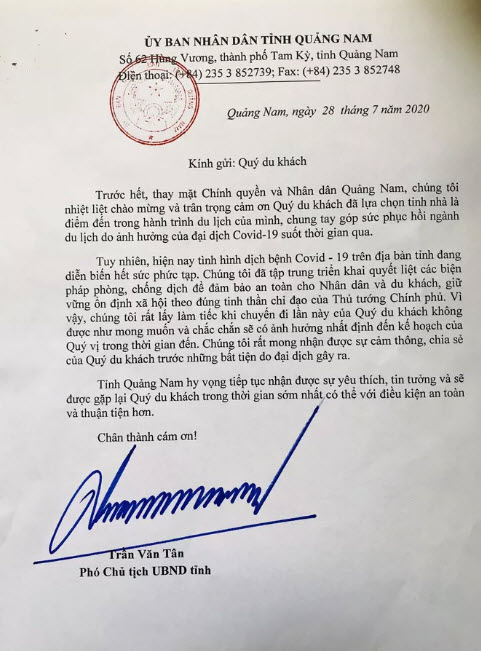 ỦY BAN NHÂN DÂN TỈNH QUẢNG NAM
Số 62 Hùng Vương, thành phố Tam Kỳ, tỉnh Quảng Nam
Điện thoại: (+84) 235 3 852739; Fax: (+84) 235 3 852748
Quảng Nam, ngày 28 tháng 7 năm 2020
Kính gửi: Quý du khách
Trước hết, thay mặt Chính quyền và Nhân dân Quảng Nam, chúng tôi
nhiệt liệt chào mừng và trân trọng cảm ơn Quý du khách đã lựa chọn tỉnh nhà là
điểm đến trong hành trình du lịch của mình, chung tay góp sức phục hồi ngành
du lịch do ảnh hưởng của đại dịch Covid-19 suốt thời gian qua.
Tuy nhiên, hiện nay tình hình dịch bệnh Covid - 19 trên địa bàn tỉnh đang
diễn biến hết sức phức tạp. Chúng tôi đã tập trung triển khai quyết liệt các biện
pháp phòng, chống dịch để đảm bảo an toàn cho Nhân dân và du khách, giữ
vững ổn định xã hội theo đúng tinh thần chỉ đạo của Thủ tướng Chính phủ. Vì
vậy, chúng tôi rất lấy làm tiếc khi chuyến đi lần này của Quý du khách không
được như mong muốn và chắc chắn sẽ có ảnh hưởng nhất định đến kế hoạch của
Quý vị trong thời gian đến. Chúng tôi rất mong nhận được sự cảm thông, chia sẻ
của Quý du khách trước những bất tiện do đại dịch gây ra.
Tỉnh Quảng Nam hy vọng tiếp tục nhận được sự yêu thích, tin tưởng và sẽ
được gặp lại Quý du khách trong thời gian sớm nhất có thể với điều kiện an toàn
và thuận tiện hơn.
Chân thành cám ơn!
Trần Văn Tân
Phó Chủ tịch UBND tỉnh